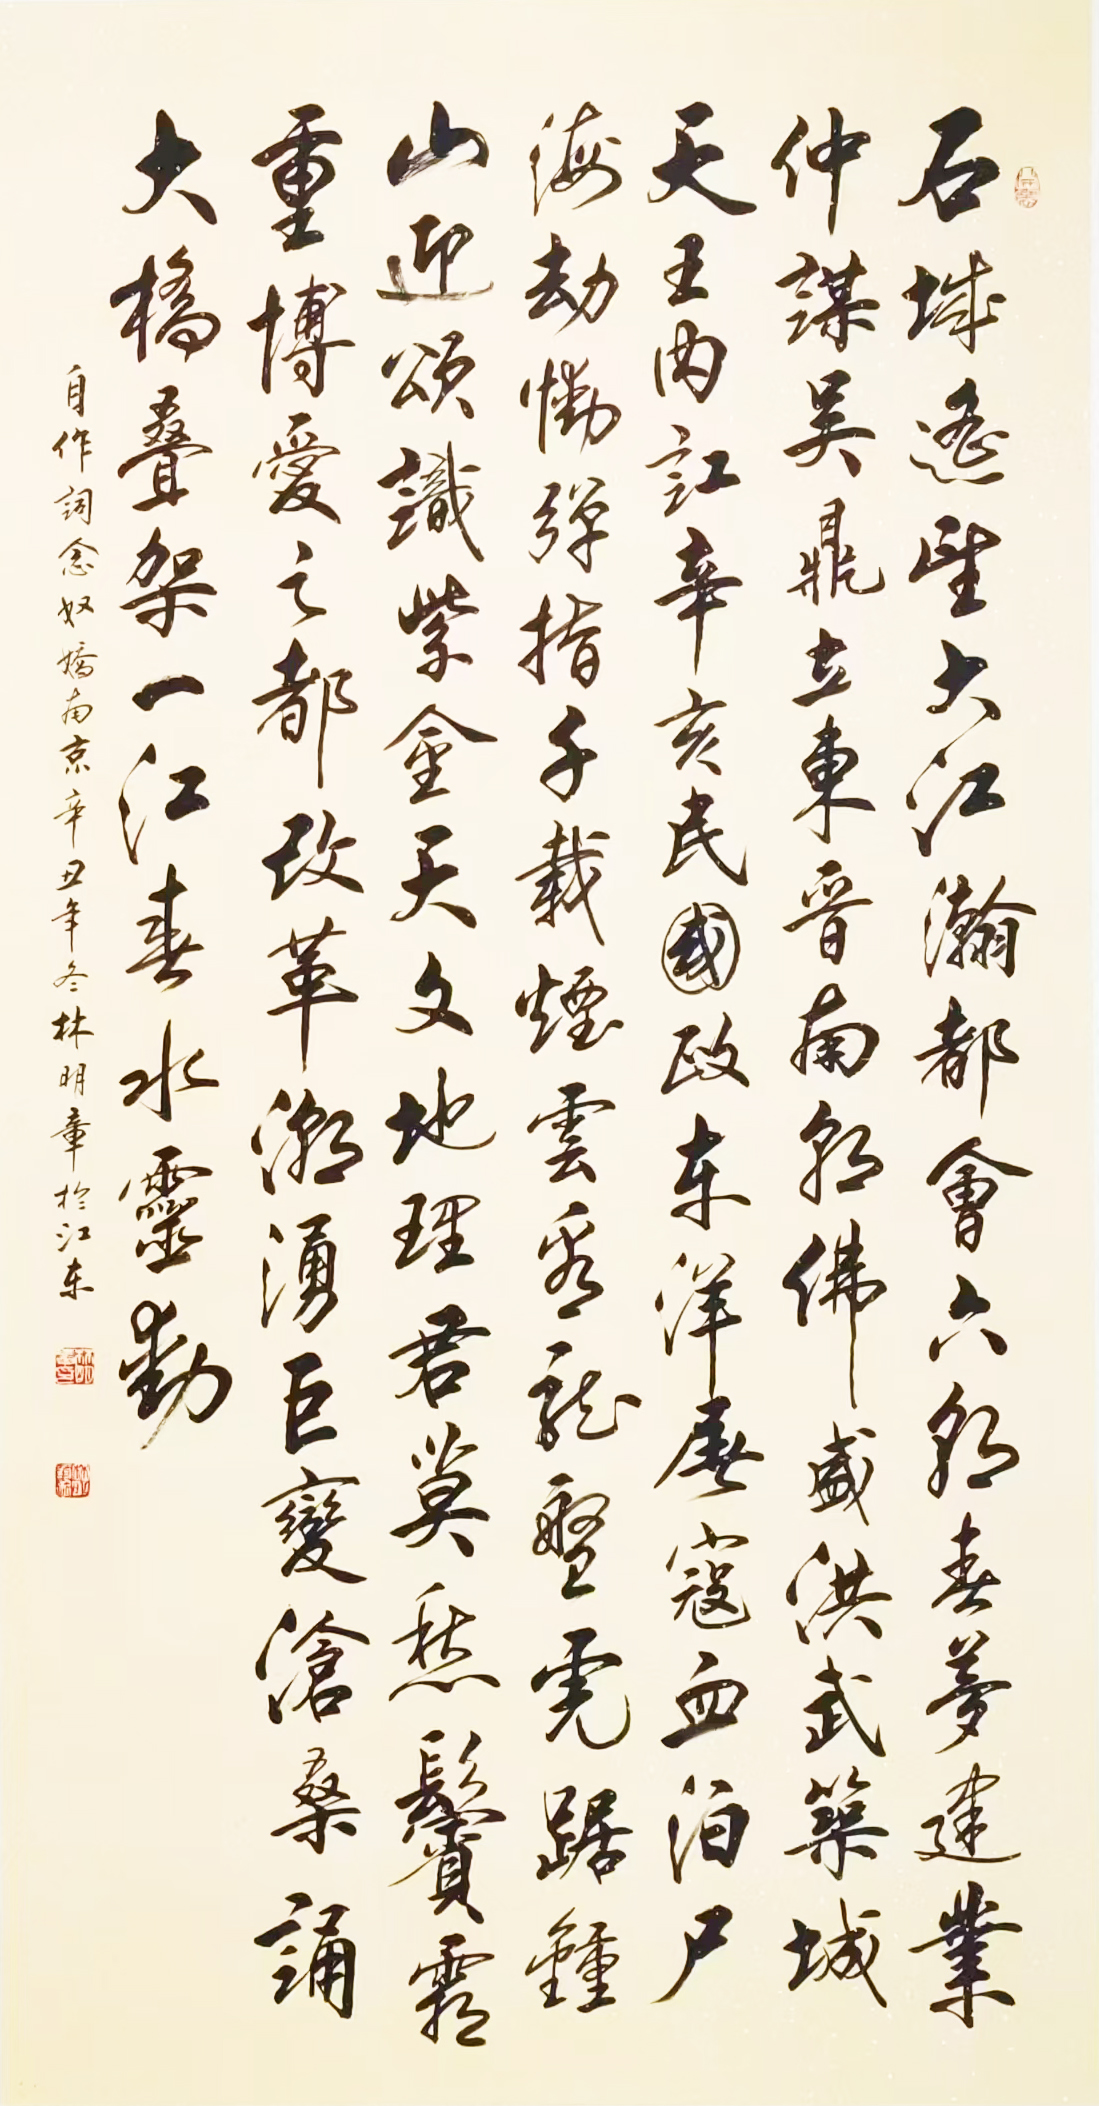 石城遙望大江瀚都會六朝春夢建業
仲謀吴鼎立東晋南朝佛盛洪武築城
天王内訌辛亥民國政东洋屠寇血泊尸
海劫慟彈指千載煙雲看龍盤虎踞鍾
山迎頌識紫金天文地理君莫愁鬢霜
重博愛之都改革潮湧巨變滄桑誦
大橋叠架一江春水靈動
自作詞念奴嬌南京辛丑年冬林明章於江东